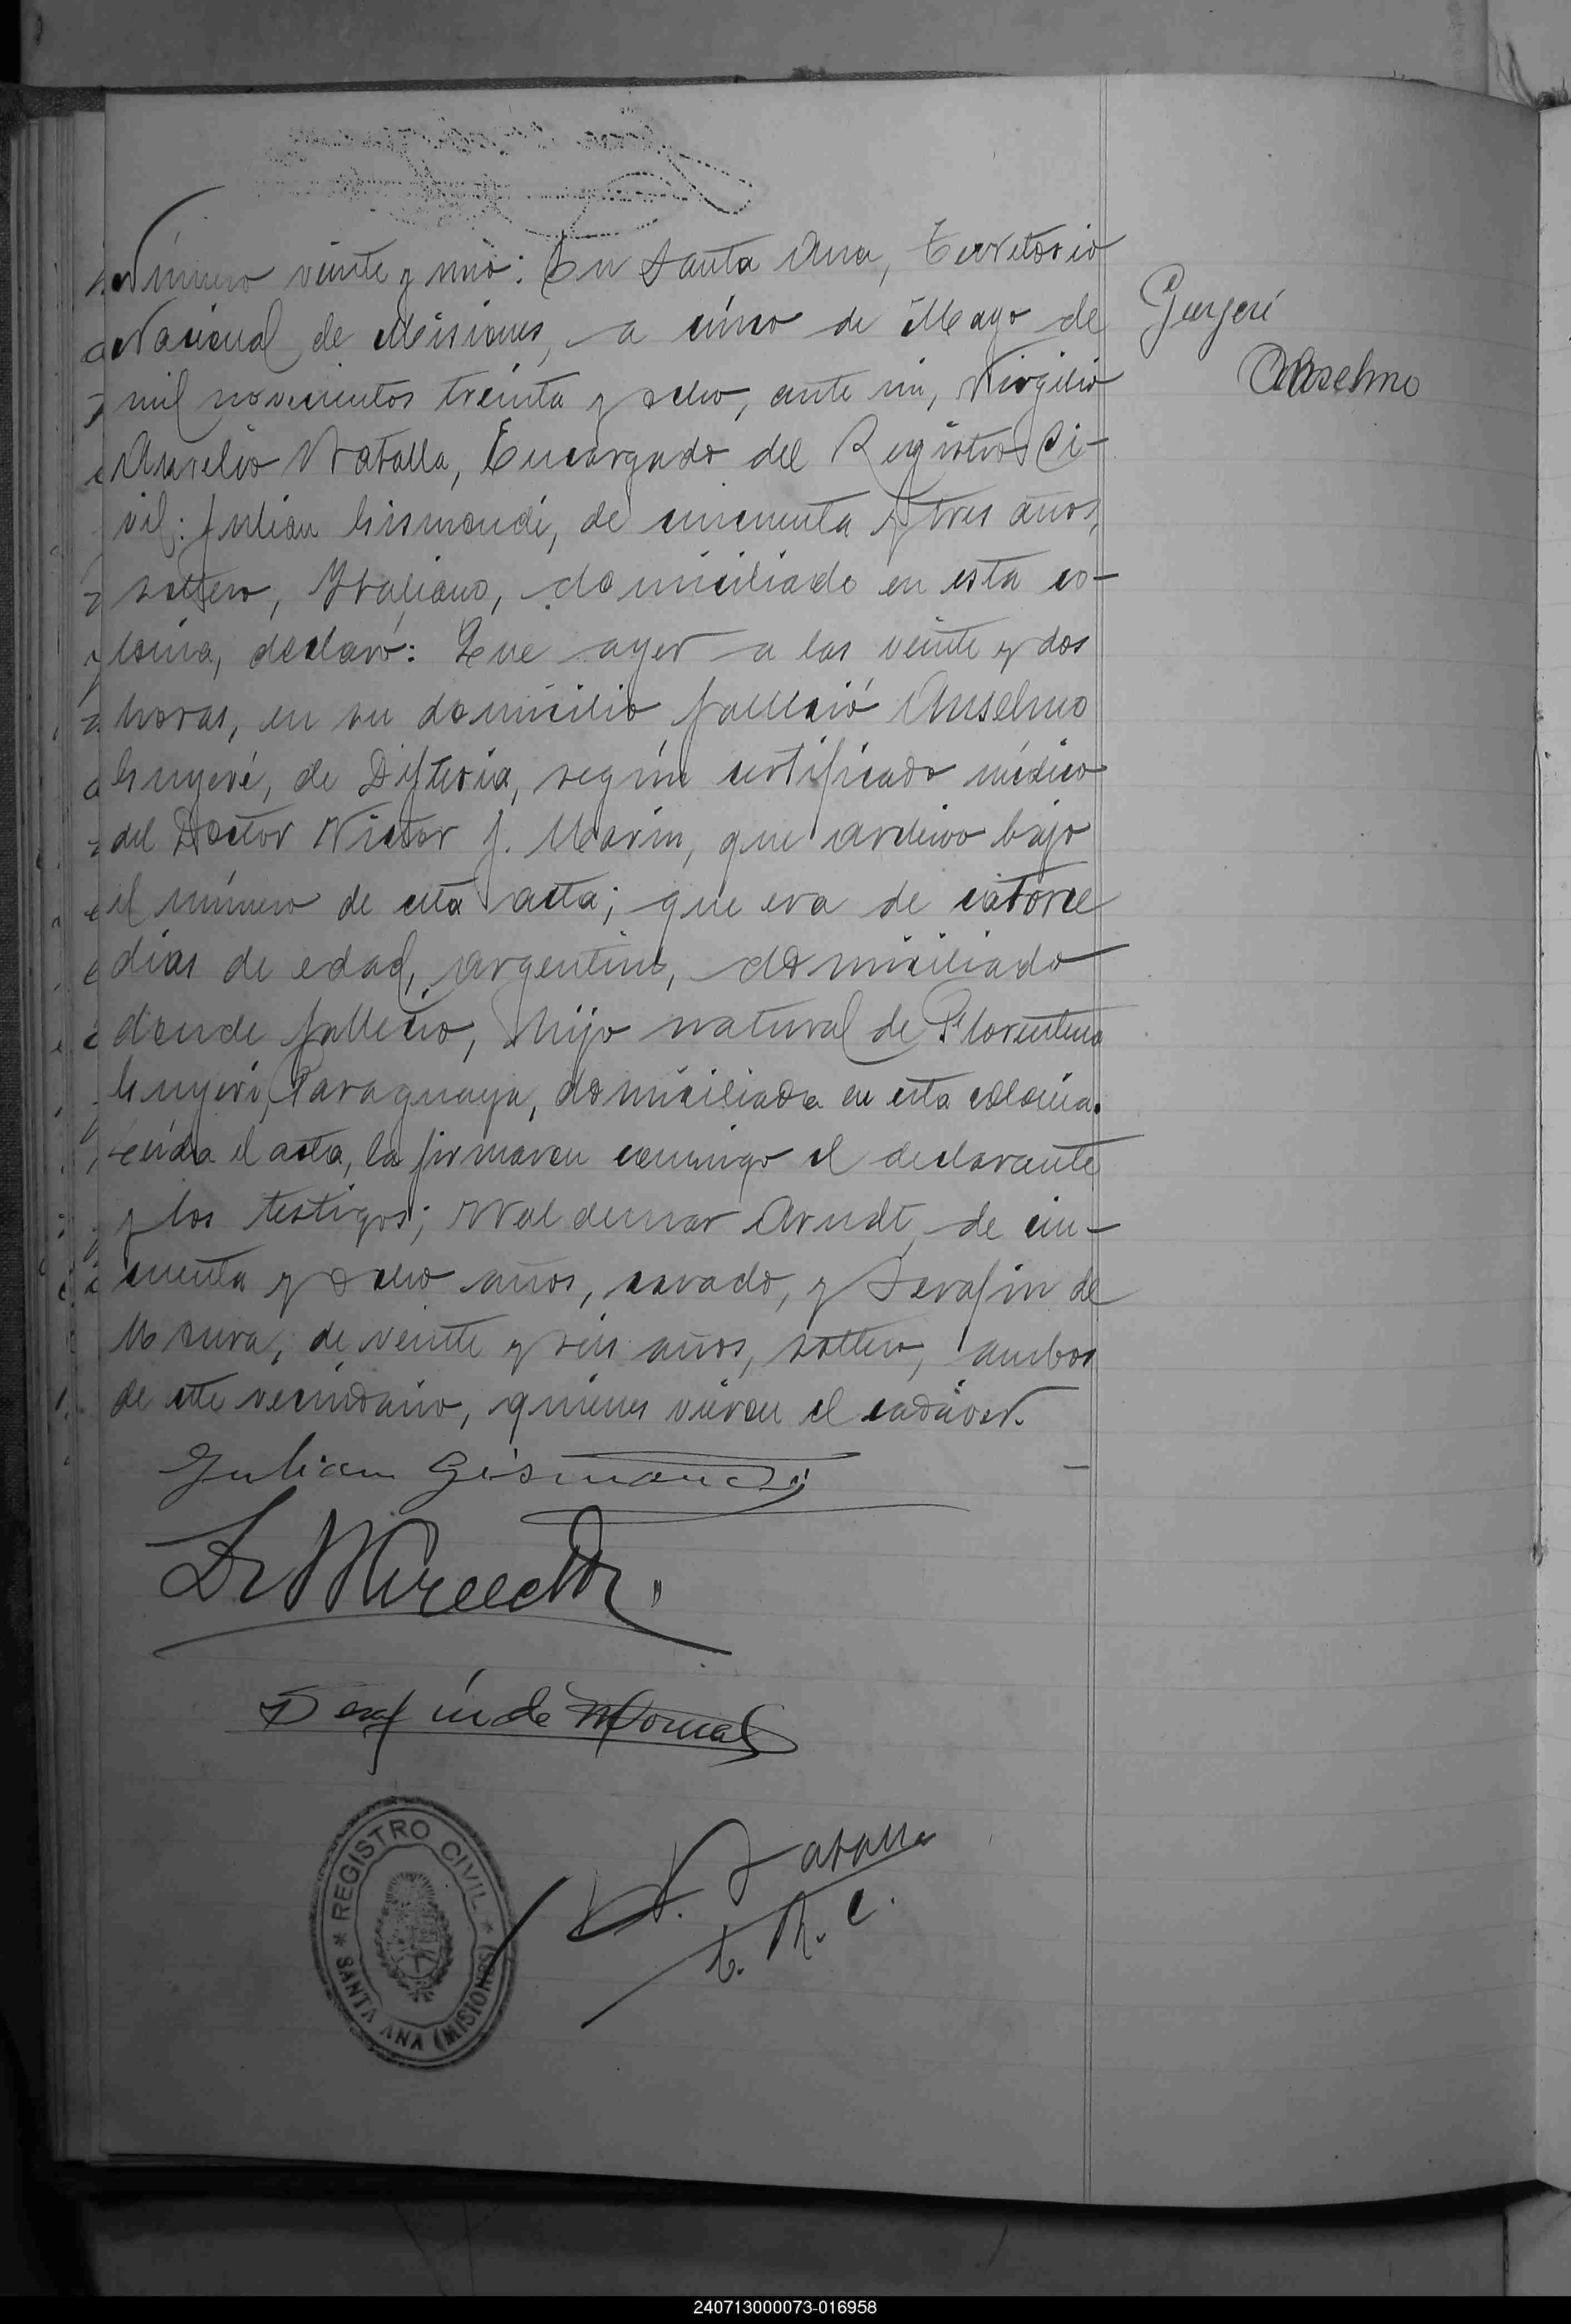 Número veinte y uno: En Santa Ana, Territorio
Nacional de Misiones, a cinco de Mayo de
mil novecientos treinta y ocho, ante mi, Virgilio
Aurelio Natalla, Encargado del Registro Ci-
vil: Julian Gismondi, de cincuenta y tres años,
soltero, Italiano, domiciliado en esta co-
lonia, declaró: Que ayer a las veinte y dos
horas, en su domicilio falleció Anselmo
Gunyeré, de Difteria, según certificado médico
del Doctor Victor J. Marin, que archivo bajo
el número de esta acta; que era de catorce
dias de edad, argentino, domiciliado
donde falleció, hijo natural de Florentina
Gunyeré, Paraguaya, domiciliada en esta colonia.
Leída el acta, la firmaron conmigo el declarante
y los testigos; Waldemar Arndt, de cin-
cuenta y ocho años, casado, y Serafin de
Moura, de veinte y seis años, soltero, ambos
de este vecindario, quienes vieron el cadáver.
Anselmo
Julian Gismondi
Serafin de Moura
REGISTRO CIVIL
SANTA ANA (MISIONES)
E. R. C.
240713000073-016958